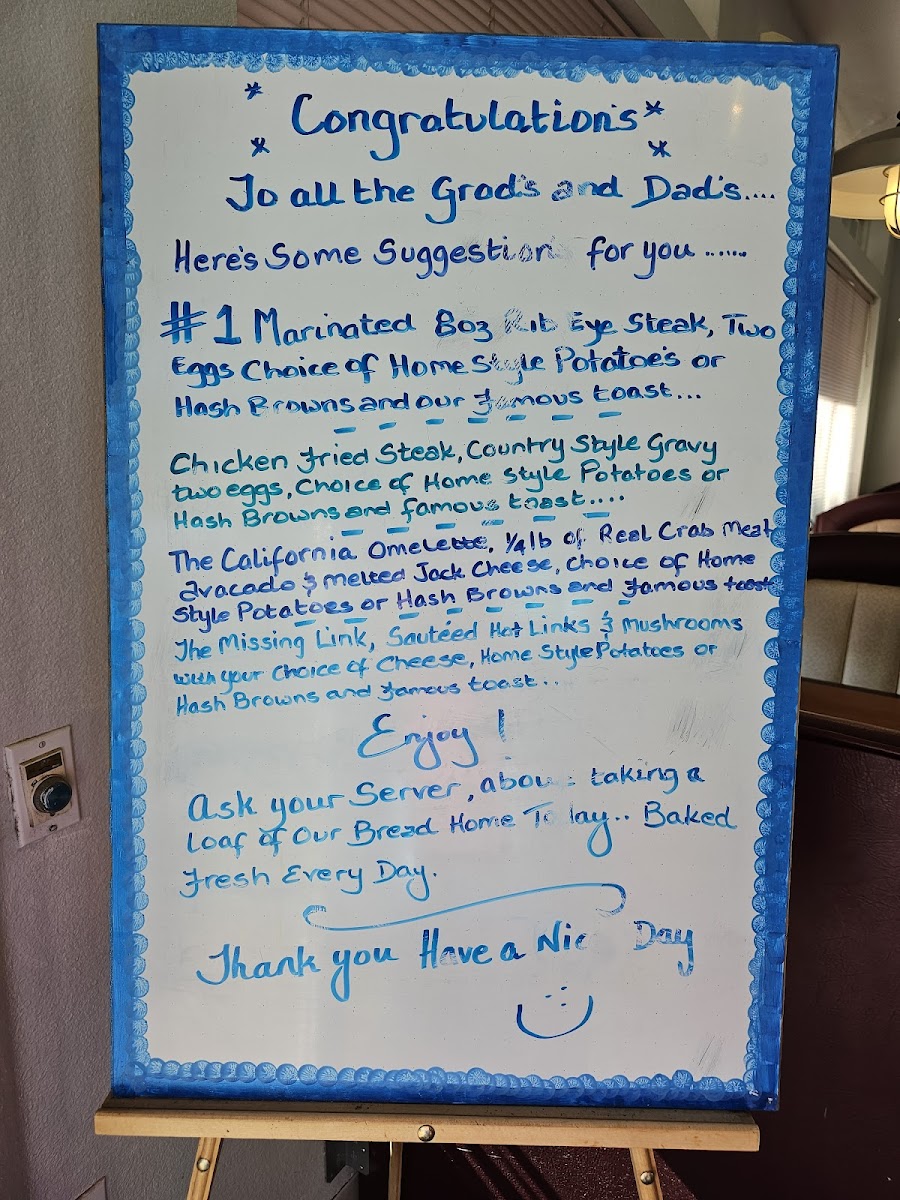 * Congratulations *
* *
To all the Grad's and Dad's....
Here's Some Suggestion for you ......
#1 Marinated 8oz Rib Eye Steak, Two
Eggs Choice of Home Style Potatoe's or
Hash Browns and our famous toast...
Chicken Fried Steak, Country Style Gravy
two eggs, Choice of Home Style Potatoes or
Hash Browns and famous toast.....
The California Omelette, 1/4 lb of Real Crab Meat
avacado & melted Jack Cheese, Choice of Home
Style Potatoes or Hash Browns and famous toast
The Missing Link, Sautéed Hot Links & mushrooms
with your Choice of Cheese, Home Style Potatoes or
Hash Browns and famous toast..
Enjoy !
Ask your Server, abou taking a
Loaf of Our Bread Home To lay.. Baked
Fresh Every Day.
Thank you Have a Nic Day